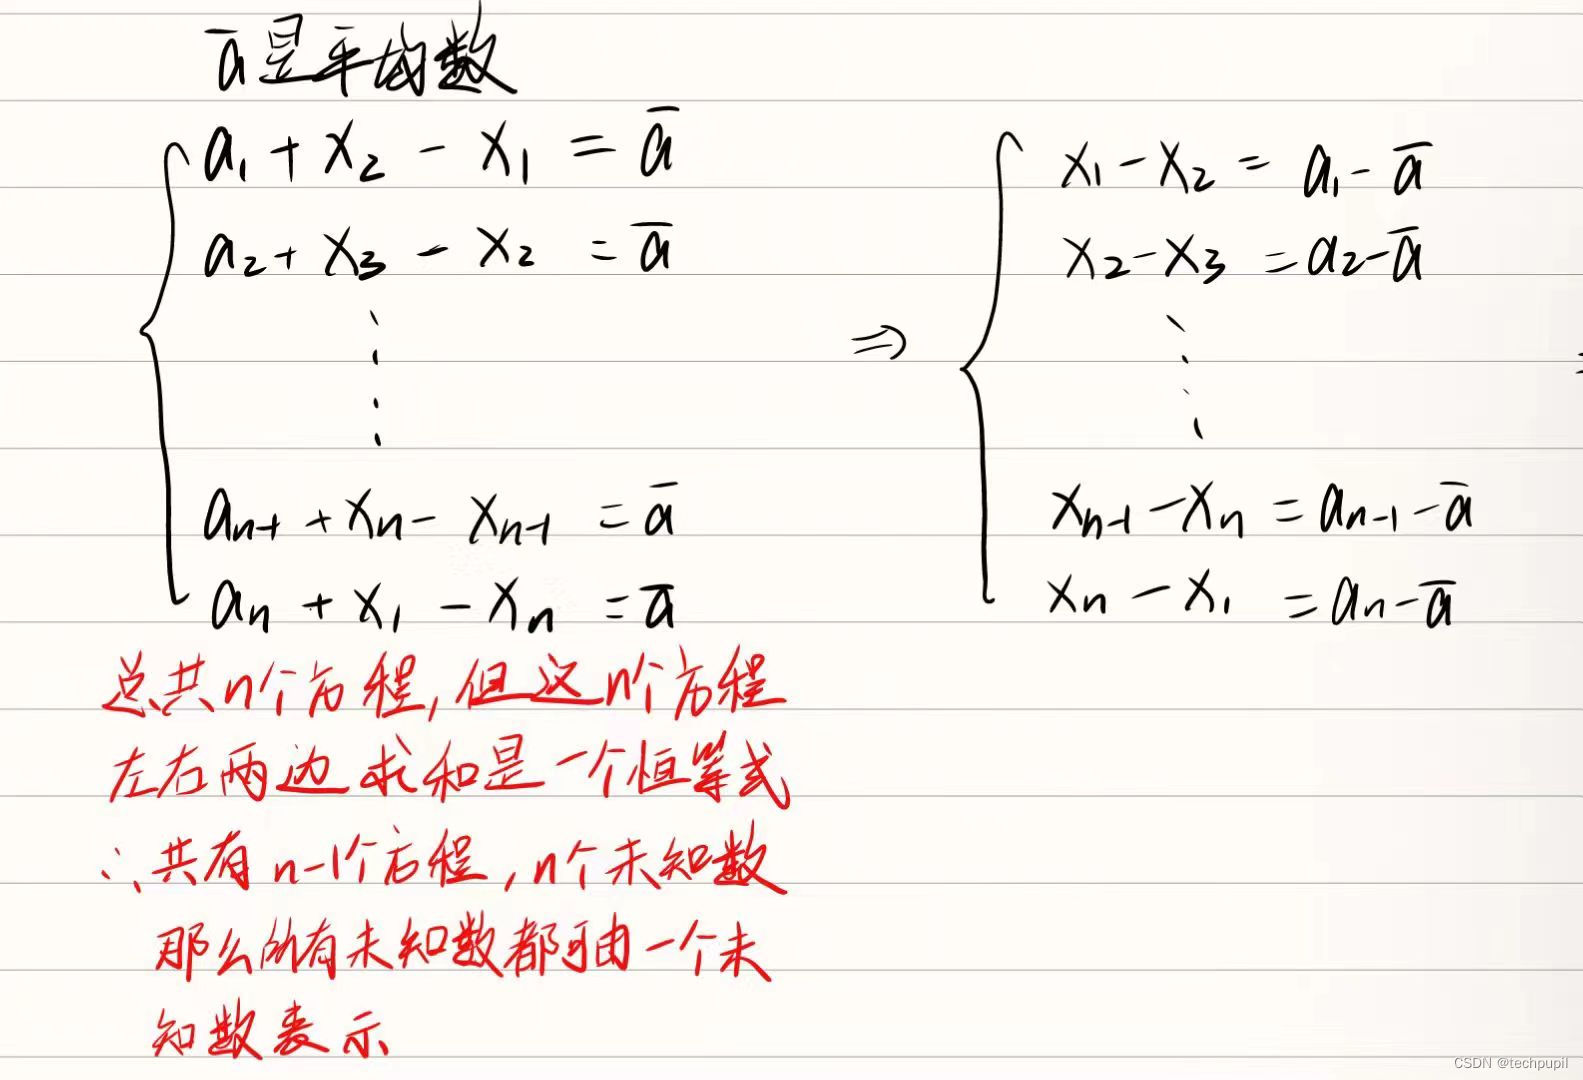 ā是平均数
a₁ + x₂ - x₁ = ā
a₂ + x₃ - x₂ = ā
⋮
aₙ₋₁ + xₙ - xₙ₋₁ = ā
aₙ + x₁ - xₙ = ā
⇒
x₁ - x₂ = a₁ - ā
x₂ - x₃ = a₂ - ā
⋮
xₙ₋₁ - xₙ = aₙ₋₁ - ā
xₙ - x₁ = aₙ - ā
总共n个方程,但这n个方程
左右两边求和是一个恒等式
∴共有n-1个方程,n个未知数
那么所有未知数都可由一个未
知数表示
CSDN @techpupil